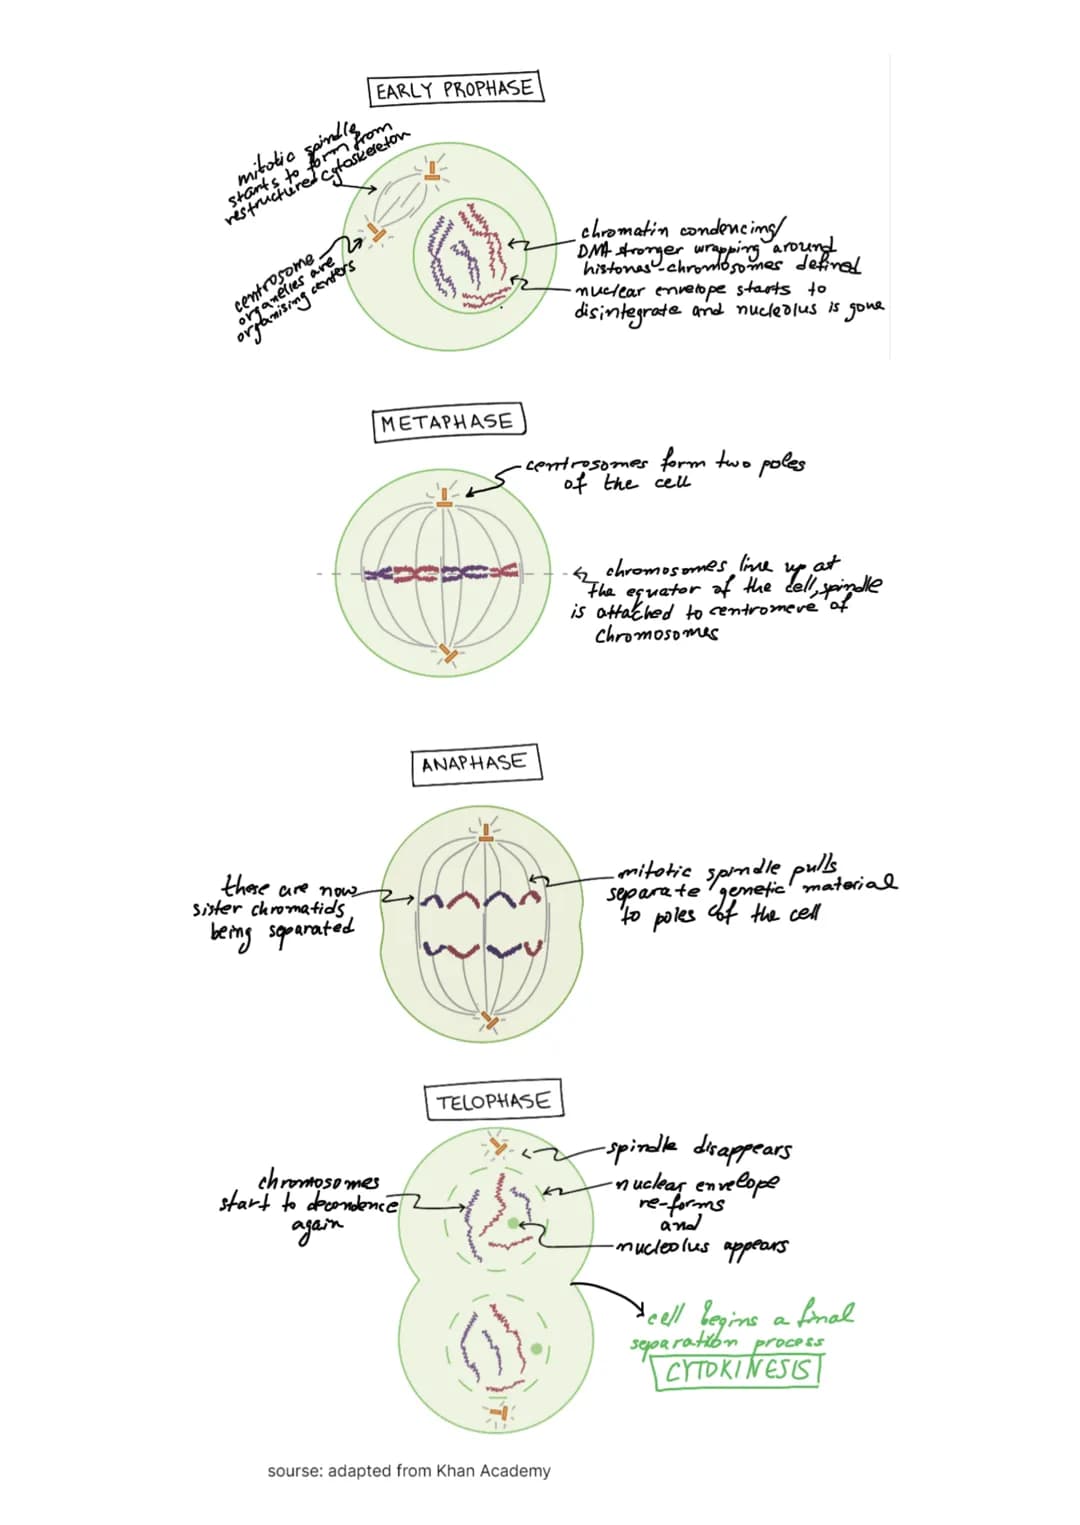 EARLY PROPHASE
mitotic spindle
starts to form from
restructured cytoskeleton
centrosome
organelles are
organising centers
chromatin condencing/
DNA stronger wrapping around
histones-chromosomes defined
nuclear envelope starts to
disintegrate and nucleolus is gone
METAPHASE
centrosomes form two poles
of the cell
chromosomes line up at
the equator of the cell, spindle
is attached to centromere of
chromosomes
ANAPHASE
there are now
sister chromatids
being separated
mitotic spindle pulls
separate genetic material
to poles of the cell
TELOPHASE
chromosomes
start to decondence
again
spindle disappears
nuclear envelope
re-forms
and
nucleolus appears
cell begins a final
separation process
CYTOKINESIS
sourse: adapted from Khan Academy